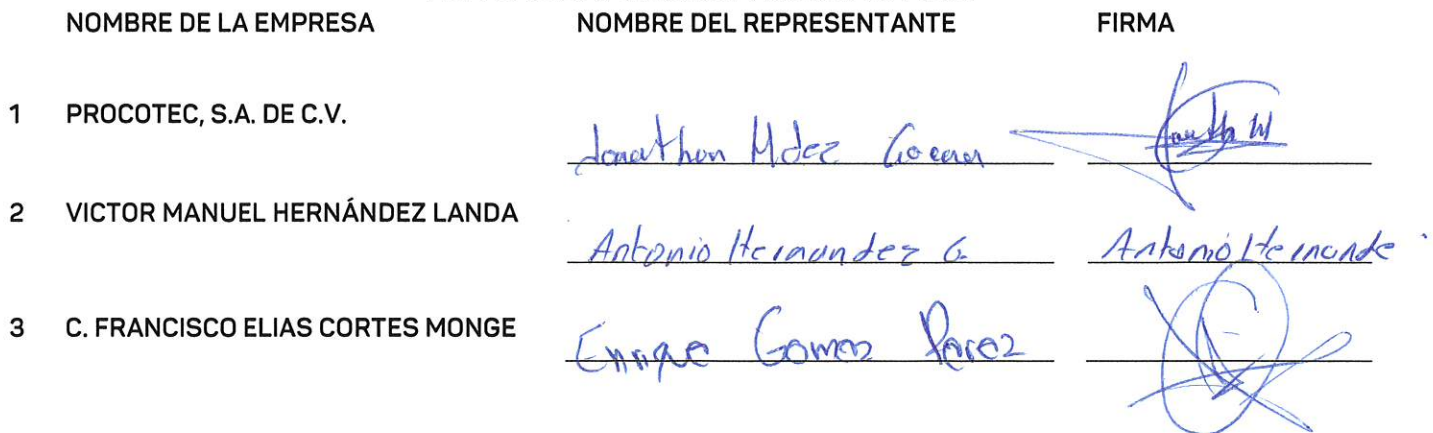 NOMBRE DE LA EMPRESA NOMBRE DEL REPRESENTANTE FIRMA
1 PROCOTEC, S.A. DE C.V. Jonathan Mdez
2 VICTOR MANUEL HERNÁNDEZ LANDA Antonio Hernandez G. Antonio Hernande
3 C. FRANCISCO ELIAS CORTES MONGE Enrique Gomez Perez